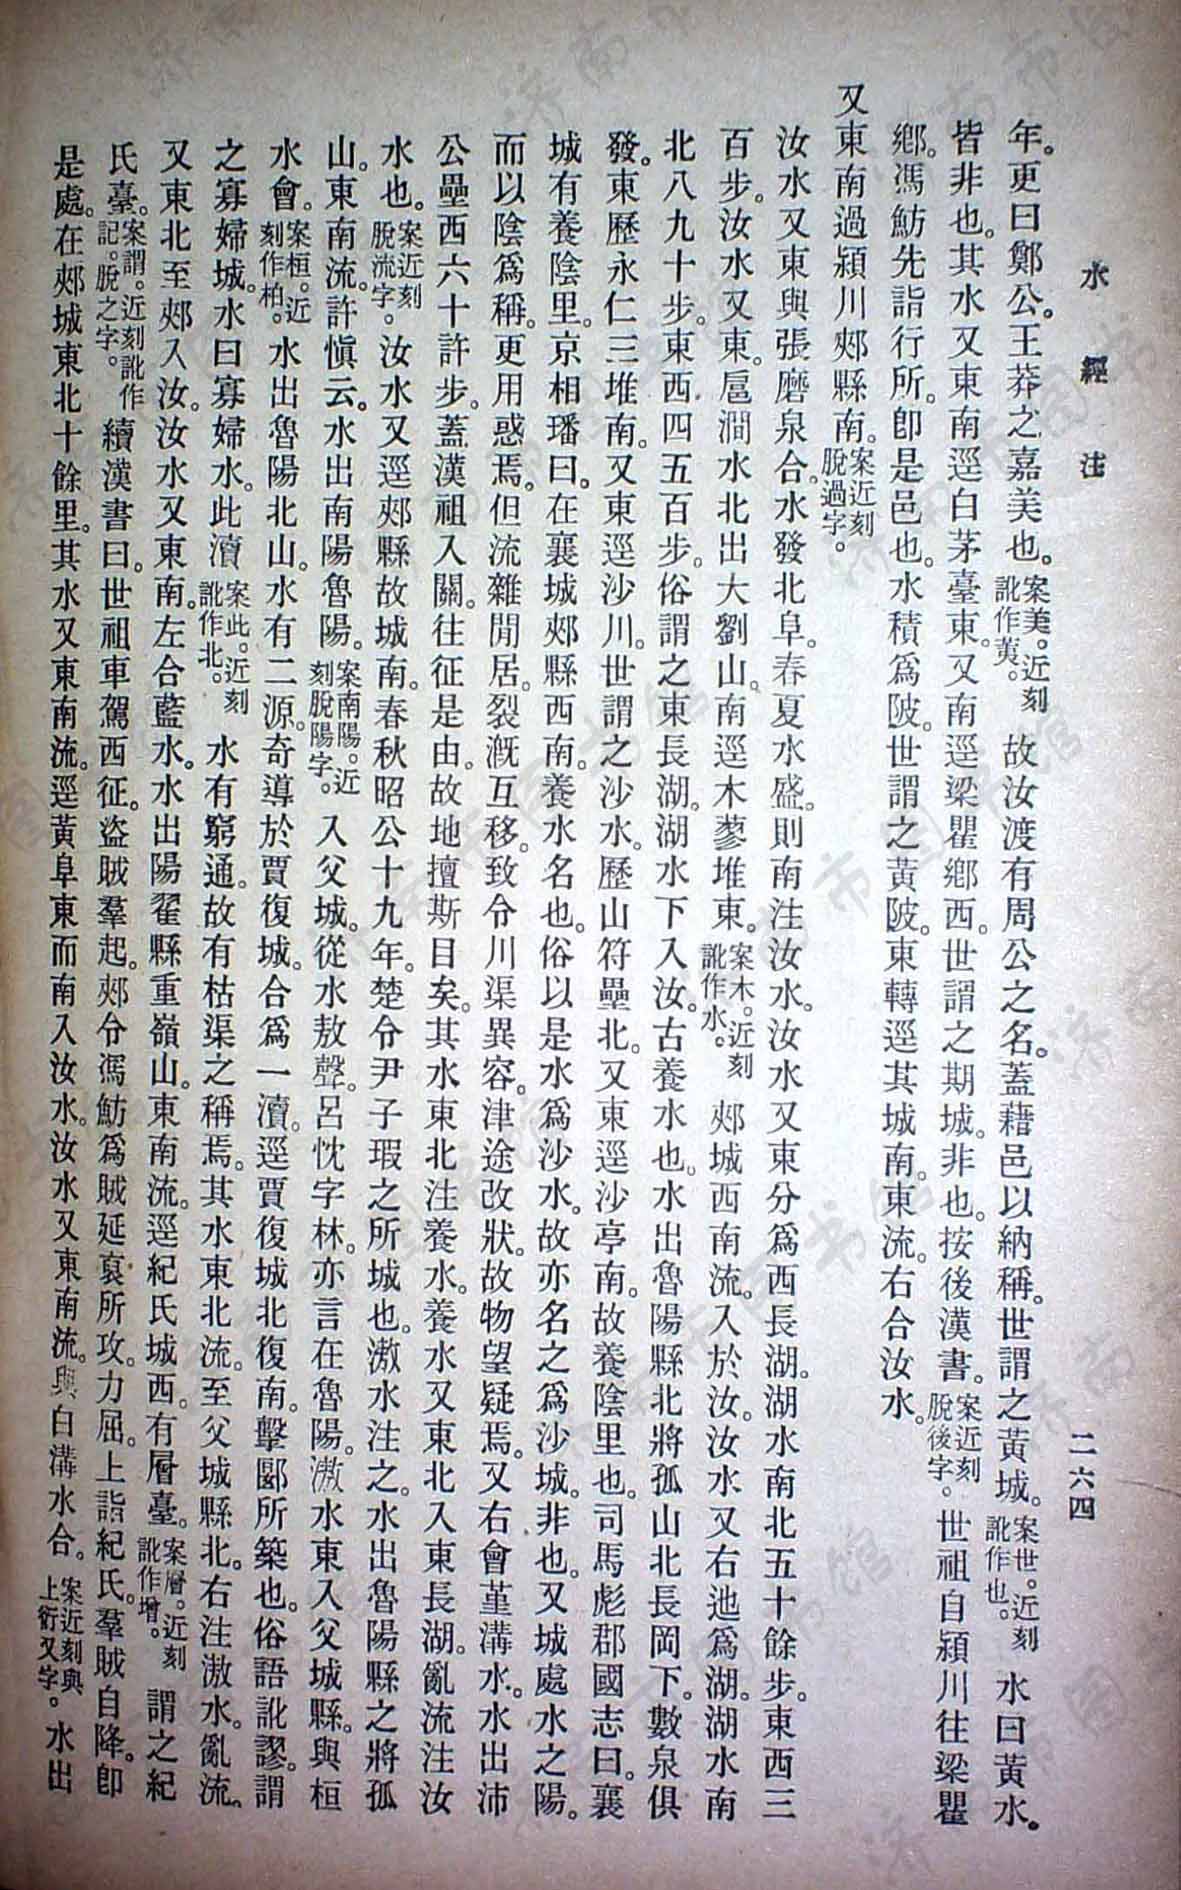 水經注
二六四
年。更曰鄭公。王莽之嘉美也。案美。近刻訛作荑。故汝渡有周公之名。蓋藉邑以納稱。世謂之黃城。案世。近刻訛作也。水曰黃水。
皆非也。其水又東南逕白茅臺東。又南逕梁瞿鄉西。世謂之期城。非也。按後漢書。案近刻脫後字。世祖自潁川往梁瞿
鄉。馮魴先詣行所。卽是邑也。水積爲陂。世謂之黃陂。東轉逕其城南。東流。右合汝水。
又東南過潁川郟縣南。案近刻脫過字。
汝水又東與張磨泉合。水發北阜。春夏水盛。則南注汝水。汝水又東分爲西長湖。湖水南北五十餘步。東西三
百步。汝水又東。扈澗水北出大劉山。南逕木蓼堆東。案木。近刻訛作水。郟城西南流。入於汝。汝水又右池爲湖。湖水南
北八九十步。東西四五百步。俗謂之東長湖。湖水下入汝。古養水也。水出魯陽縣北將孤山北長岡下。數泉俱
發。東歷永仁三堆南。又東逕沙川。世謂之沙水。歷山符壘北。又東逕沙亭南。故養陰里也。司馬彪郡國志曰。襄
城有養陰里。京相璠曰。在襄城郟縣西南。養水名也。俗以是水爲沙水。故亦名之爲沙城。非也。又城處水之陽。
而以陰爲稱。更用惑焉。但流雜閒居。裂溉互移。致令川渠異容。津途改狀。故物望疑焉。又右會堇溝水。水出沛
公壘西六十許步。蓋漢祖入關。往征是由。故地擅斯目矣。其水東北注養水。養水又東北入東長湖。亂流注汝
水也。案近刻脫流字。汝水又逕郟縣故城南。春秋昭公十九年。楚令尹子瑕之所城也。滶水注之。水出魯陽縣之將孤
山。東南流。許愼云。水出南陽魯陽。案南陽。近刻脫陽字。入父城。從水敖聲。呂忱字林。亦言在魯陽。滶水東入父城縣。與桓
水會。案桓。近刻作柏。水出魯陽北山。水有二源。奇導於賈復城。合爲一瀆。逕賈復城北復南。擊郾所築也。俗語訛謬。謂
之寡婦城。水曰寡婦水。此瀆案此。近刻訛作北。水有窮通。故有枯渠之稱焉。其水東北流。至父城縣北。右注滶水。亂流。
又東北至郟入汝。汝水又東南。左合藍水。水出陽翟縣重嶺山。東南流。逕紀氏城西。有層臺。案層。近刻訛作增。謂之紀
氏臺。案謂。近刻訛作記。脫之字。續漢書曰。世祖車駕西征。盜賊羣起。郟令馮魴爲賊延裒所攻。力屈。上詣紀氏。羣賊自降。卽
是處。在郟城東北十餘里。其水又東南流。逕黃阜東而南入汝水。汝水又東南流。與白溝水合。案近刻與上衍又字。水出